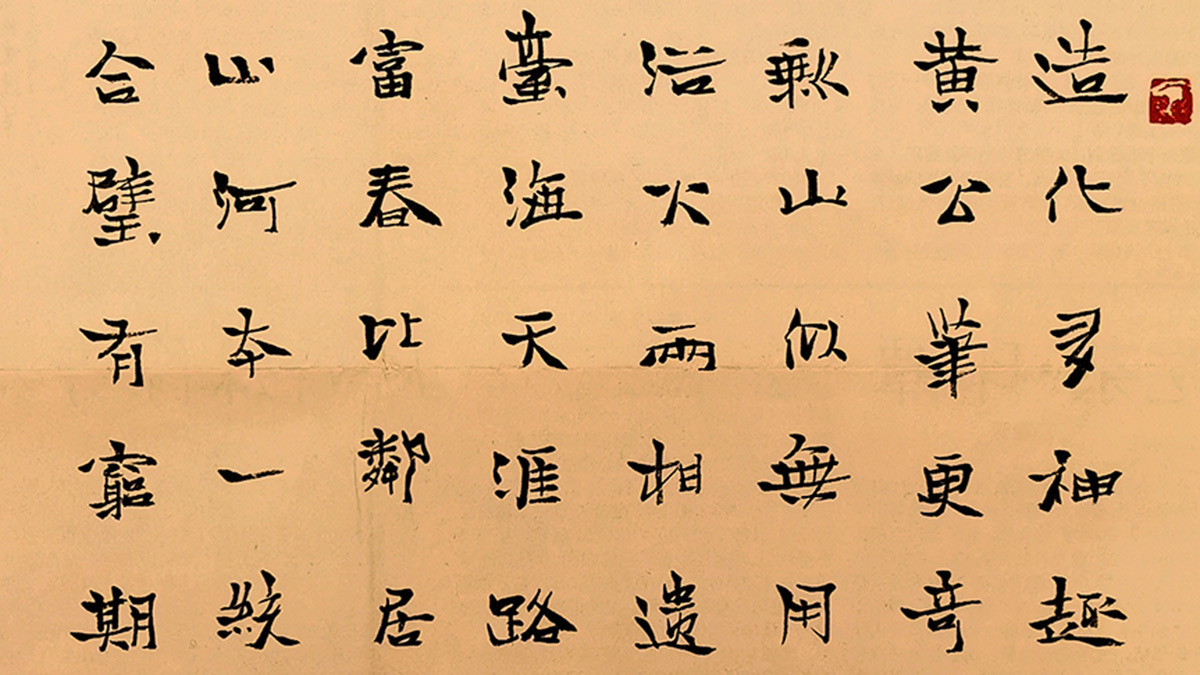 造化多神趣
黄公筆更奇
剩山似無用
浴火兩相遺
臺海天涯路
富春比鄰居
山河本一統
合璧有窮期